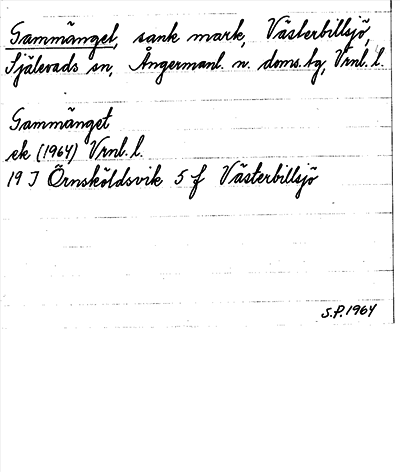 Gammänget, sank mark, Västerbillsjö,
Själevads sn, Ångermanl. n. doms.tg, Vrnl. l.
Gammänget
ek (1964) Vrnl. l.
19 J Örnsköldsvik 5 f Västerbillsjö
S.P. 1964